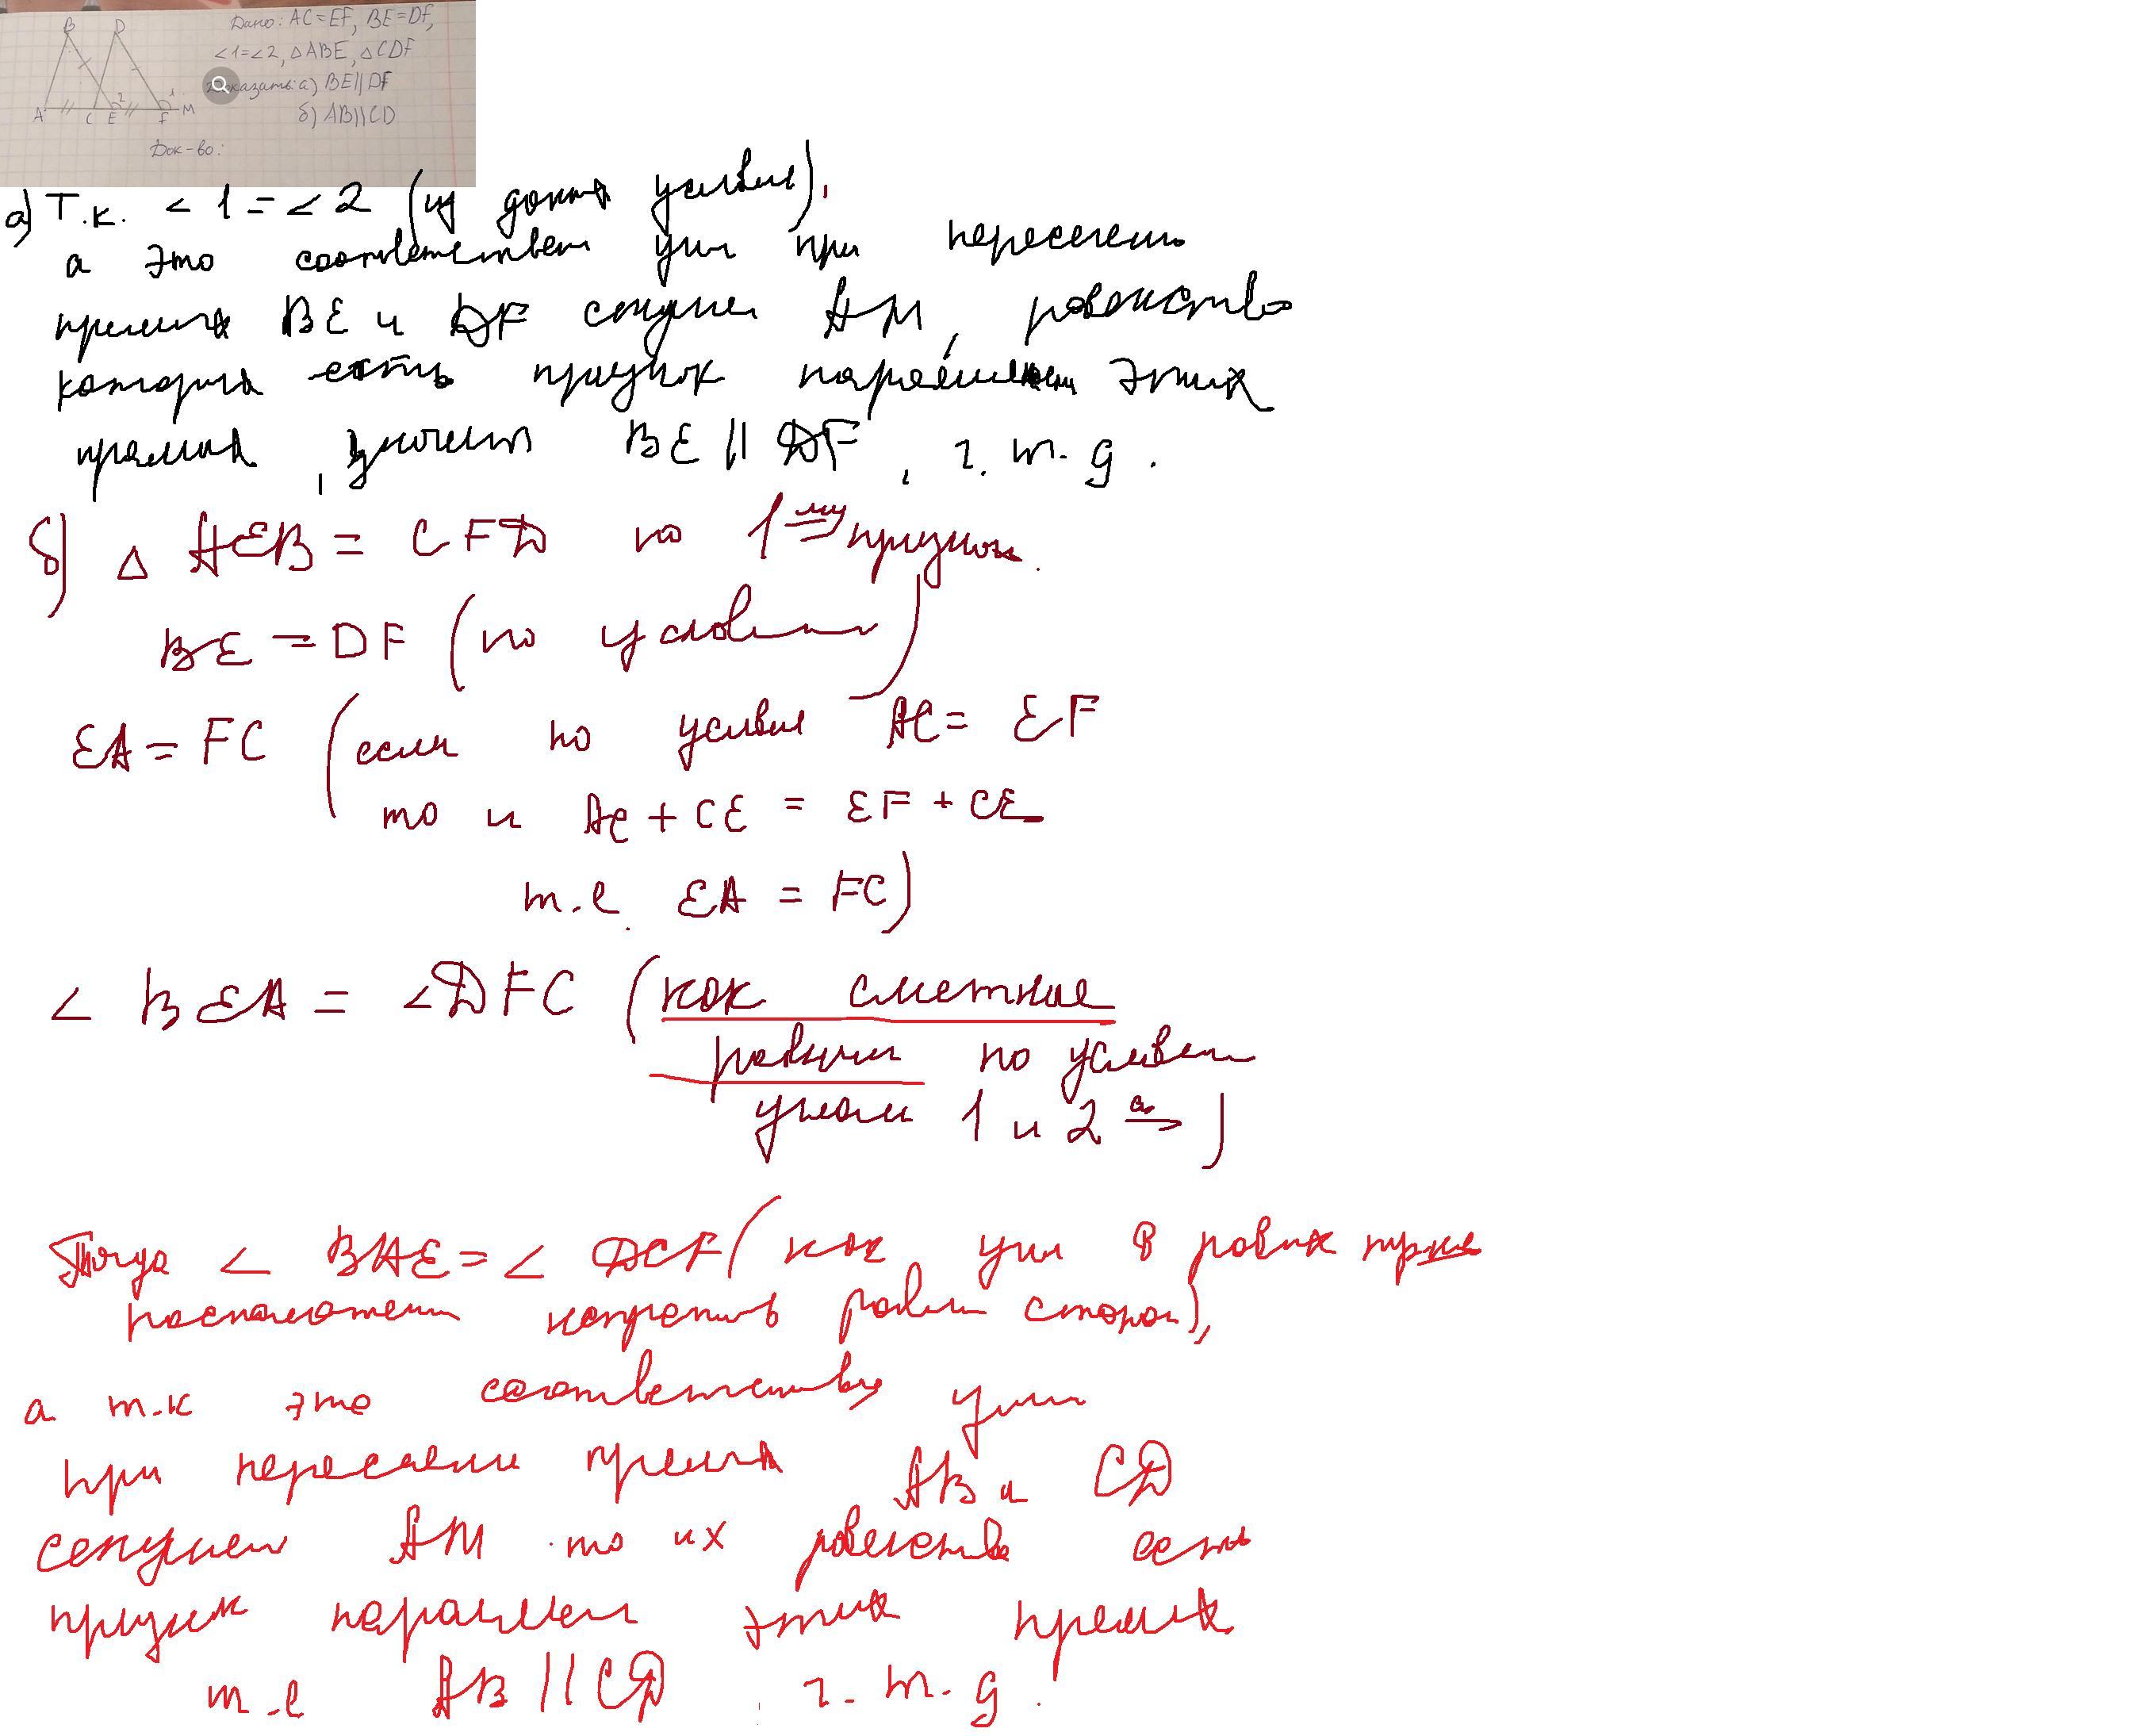 Дано: AC=EF, BE=DF,
∠1=∠2, △ABE, △CDF
Доказать: а) BE||DF
б) AB||CD
B D
2 1
A C E F M
Док-во:
а) Т.к. ∠1=∠2 (из условия),
а это соответствен угл при пересечен
прямых BE и DF секущей AM, равенство
которых есть признак параллельн этих
прямых, значит BE || DF, ч.т.д.
б) △ AEB = CFD по 1 му признак.
BE = DF (по условию)
EA = FC (если по условия AC = EF
то и AC + CE = EF + CE
т.е. EA = FC)
∠ BEA = ∠DFC (как смежные
равным по условию
углам 1 и 2)
Тогда ∠ BAE = ∠ DCF (как угл в равных
расположен напротив равн сторон),
а т.к это соответств угл
при пересечен прямых AB и CD
секущей AM то их равенств есть
признак параллел этих прямых
т.е AB || CD ч.т.д.